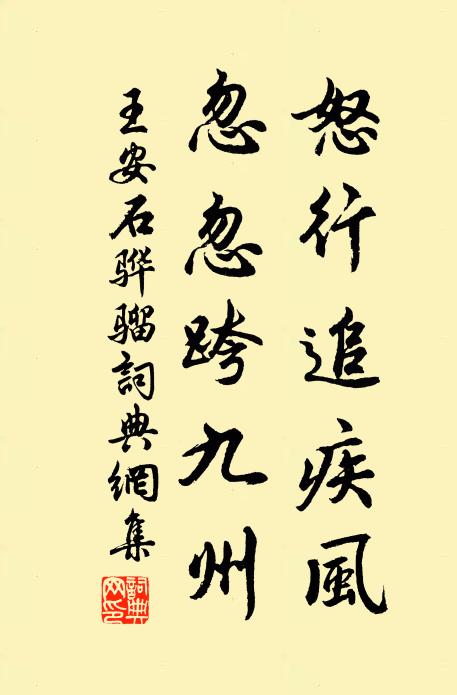 怒行追疾風
忽忽跨九州
王安石骅骝詞典網集
詞典网印